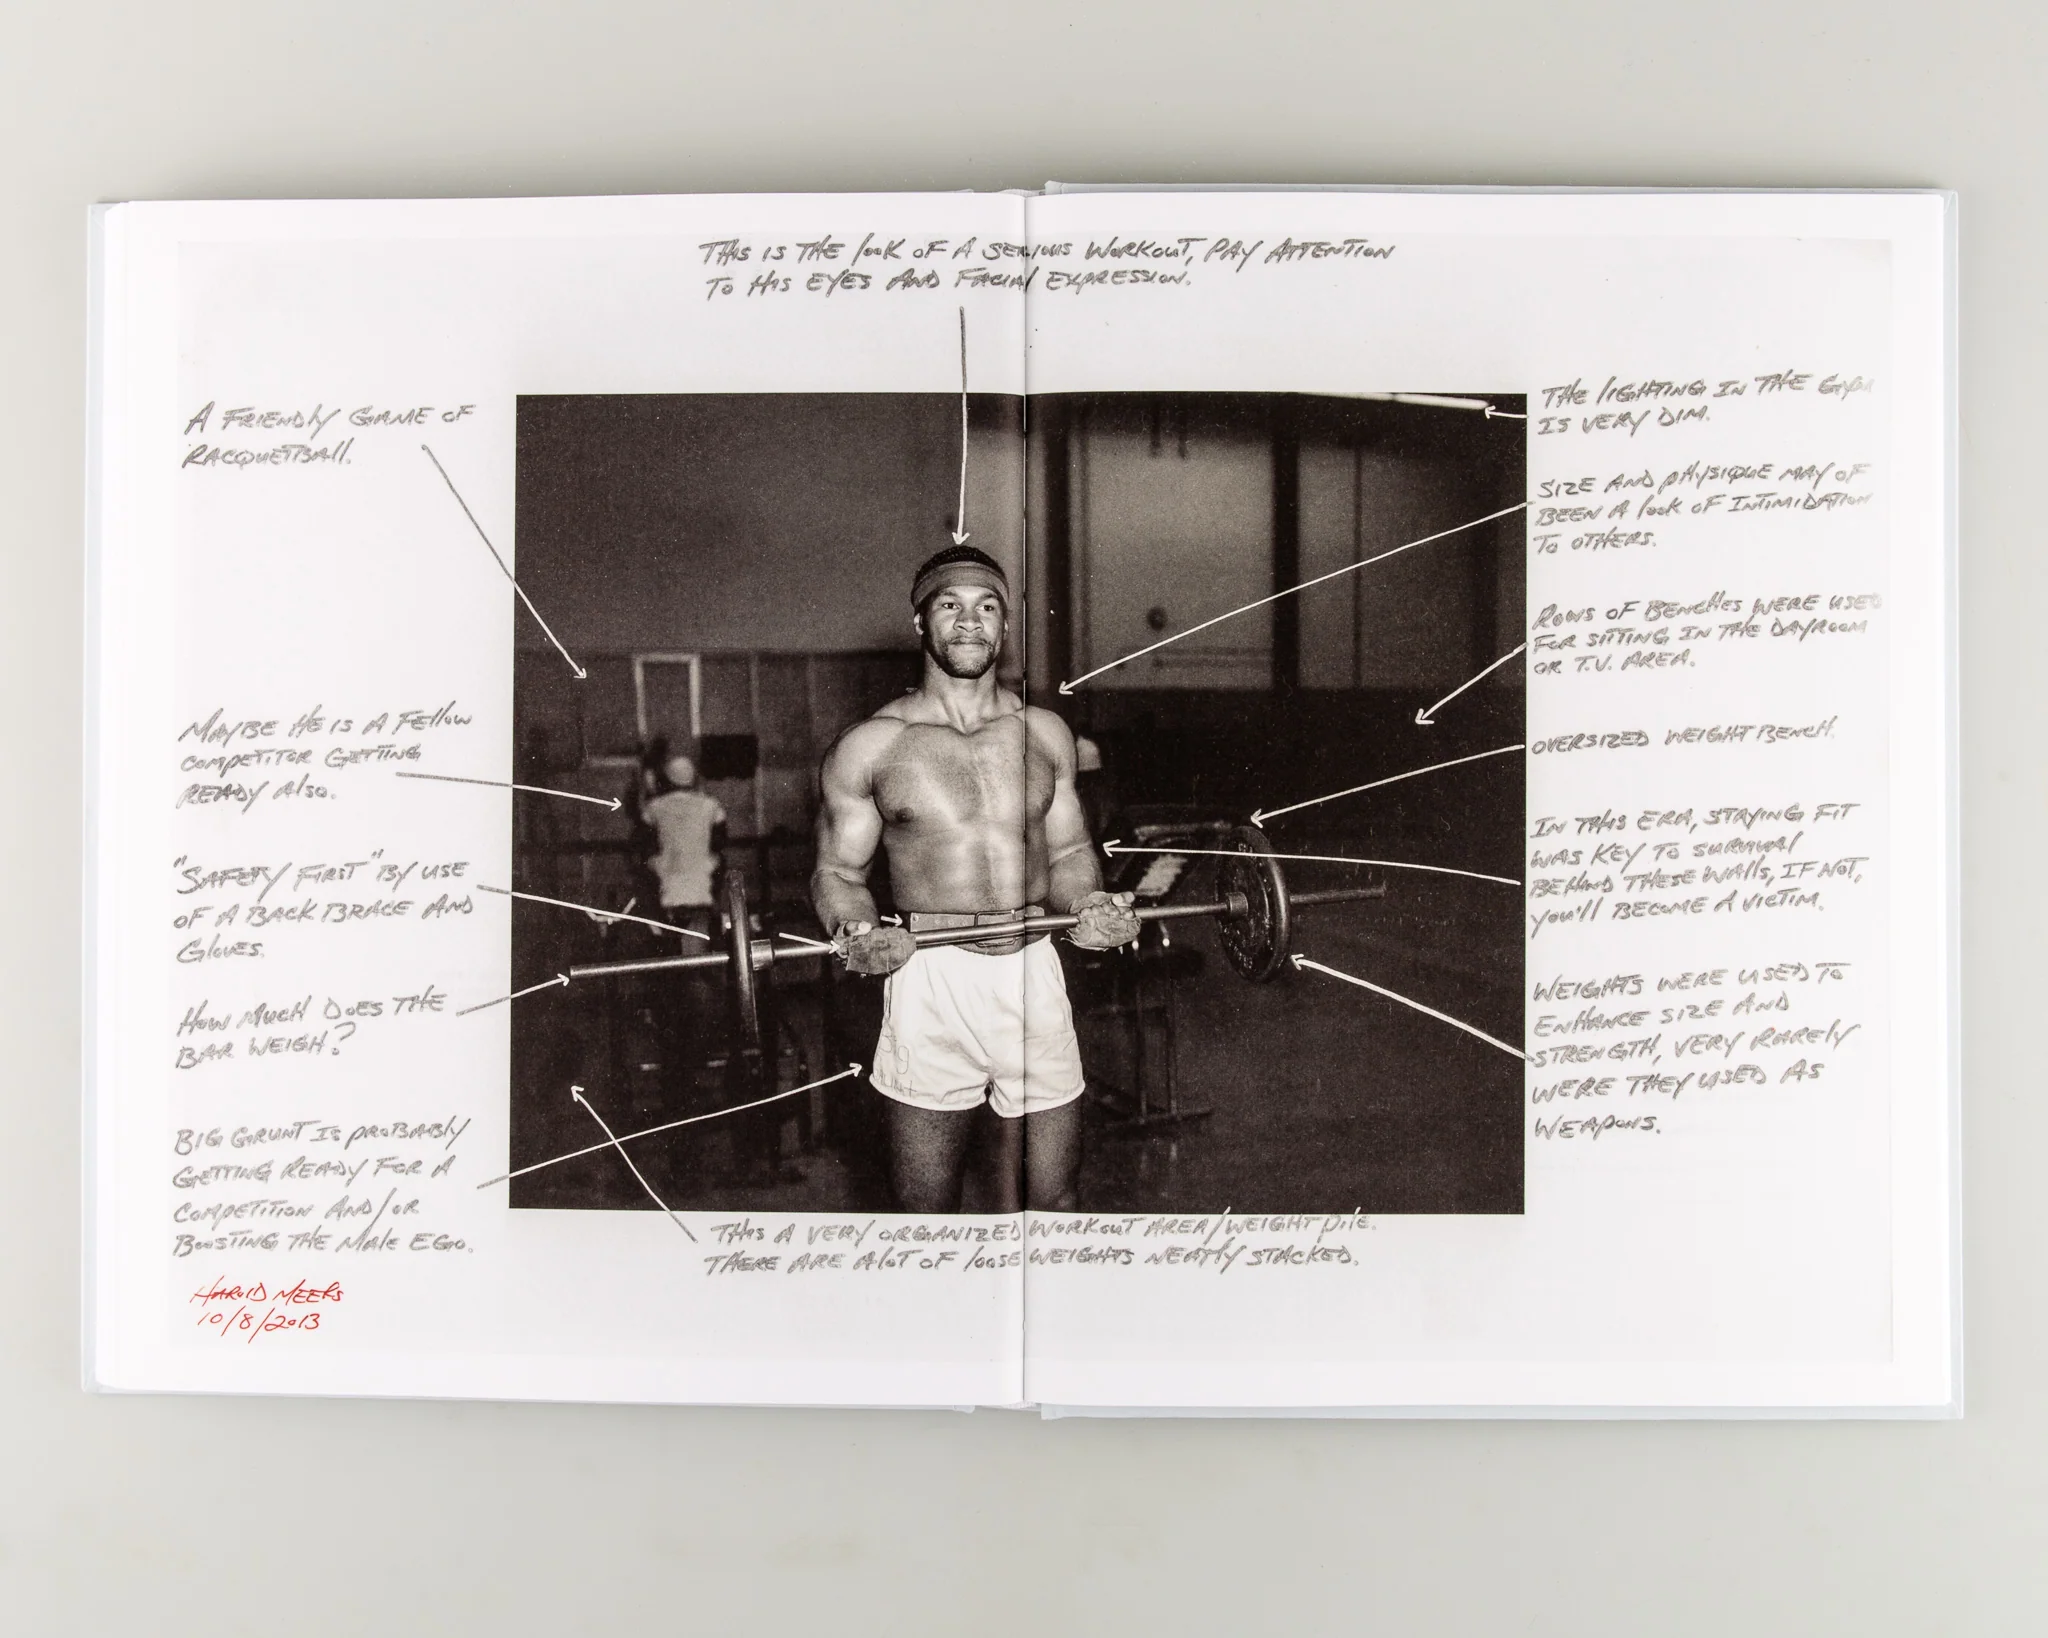 THIS IS THE look OF A SERIOUS WORKOUT, PAY ATTENTION
TO HIS EYES AND FACIAl EXPRESSION.
A FRIENDly GAME OF
RACQUETBAll.
MAYBE HE IS A FEllow
COMPETITOR GETTING
READY Also.
"SAFETY FIRST" BY USE
OF A BACK BRACE AND
GloVES.
HOW MUCH DOES THE
BAR WEIGH?
BIG GRUNT IS pROBABly
GETTING READY FOR A
COMPETITION AND/OR
BOOSTING THE MAlE EGO.
HAROlD MEEKS
10/8/2013
THE lIGHTING IN THE GYM
IS VERY DIM.
SIZE AND pHYSIQUE MAY OF
BEEN A look OF INTIMIDATION
TO OTHERS.
ROWS OF BENCHES WERE USED
FOR SITTING IN THE DAYROOM
OR T.V. AREA.
OVERSIZED WEIGHT BENCH.
IN THIS ERA, STAYING FIT
WAS KEY TO SURVIVAl
BEHIND THESE WAlls, IF NOT,
YOU'll BECOME A VICTIM.
WEIGHTS WERE USED TO
ENHANCE SIZE AND
STRENGTH, VERY RARELY
WERE THEY USED AS
WEApONS.
Big
THIS A VERY ORGANIZED WORKOUT AREA/WEIGHT pIlE.
THERE ARE A loT OF loosE WEIGHTS NEATly STACKED.